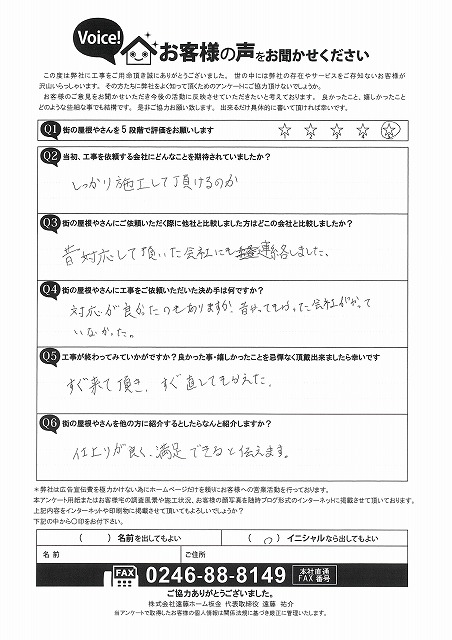 Voice!
お客様の声をお聞かせください
この度は弊社に工事をご用命頂き誠にありがとうございました。 世の中には弊社の存在やサービスをご存知ないお客様が
沢山いらっしゃいます。 その方たちに弊社をよく知って頂くためのアンケートにご協力頂けないでしょうか。
お客様のご意見をお聞かせいただき今後の活動に反映させていただきたいと考えております。 良かったこと、嬉しかったことと
どのような些細な事でも結構です。 是非ご協力お願い致します。 出来るだけ具体的に書いて頂ければ幸いです。
Q1 街の屋根やさんを5段階で評価をお願いします
☆ ☆ ☆ ☆ ☆
Q2 当初、工事を依頼する会社にどんなことを期待されていましたか?
しっかり施工して頂けるのか
Q3 街の屋根やさんにご依頼いただく際に他社と比較しました方はどこの会社と比較しましたか?
昔対応して頂いた会社にも連絡しました、
Q4 街の屋根やさんに工事をご依頼いただいた決め手は何ですか?
対応が良かったのもありますが、昔やってもらった会社がやって
いなかった。
Q5 工事が終わってみていかがですか?良かった事・嬉しかったことを忌憚なく頂戴出来ましたら幸いです
すぐ来て頂き、すぐ直してもらえた、
Q6 街の屋根やさんを他の方に紹介するとしたらなんと紹介しますか?
仕上りが良く、満足できると伝えます。
※弊社は広告宣伝費を極力かけない為にホームページだけを頼りにお客様への営業活動を行っております。
本アンケート用紙またはお客様宅の調査風景や施工状況、お客様の顔写真を随時ブログ形式のインターネットに掲載させて頂いております。
上記内容をインターネットや印刷物に掲載させて頂いてもよろしいでしょうか?
下記の中から〇印をお付下さい。
( ) 名前を出してもよい ( ○ ) イニシャルなら出してもよい
名 前 ご住所
FAX 0246-88-8149 本社直通 FAX番号
ご協力ありがとうございました。
株式会社遠藤ホーム板金 代表取締役 遠藤 祐介
当アンケートで取得したお客様の個人情報は関係法規に基づき厳正に管理いたします。